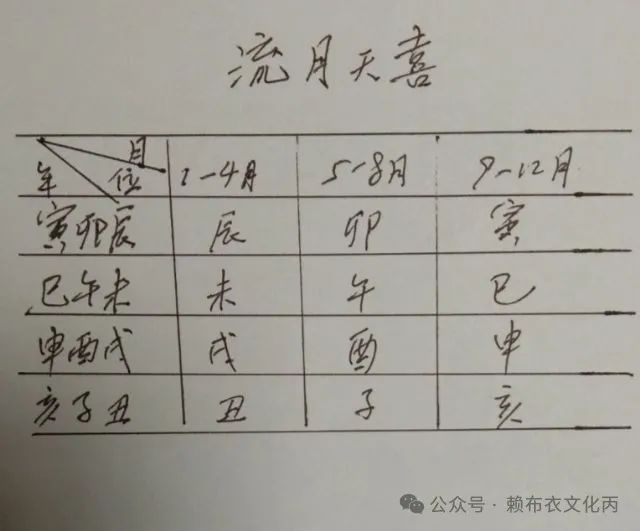 流月天喜
月
年 位 1-4月 5-8月 9-12月
寅卯辰 辰 卯 寅
巳午未 未 午 巳
申酉戌 戌 酉 申
亥子丑 丑 子 亥
公众号·赖布衣文化丙